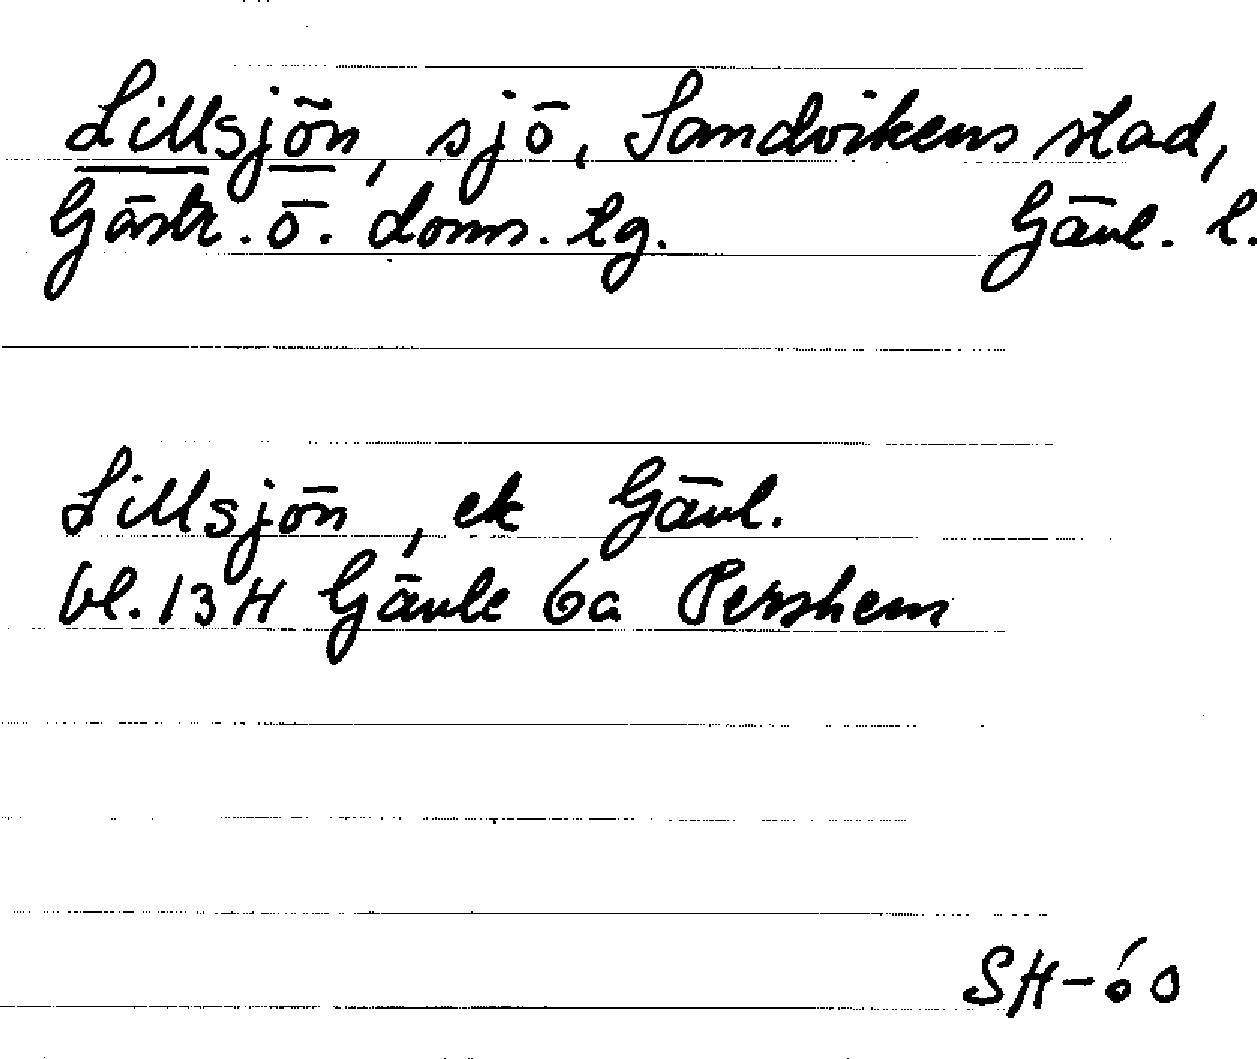 Lillsjön, sjö, Sandvikens stad,
Gästr. ö. doms. lg. Gävl. l.
Lillsjön, ek Gävl.
bl. 13H Gävle 6a Pershem
SH-60